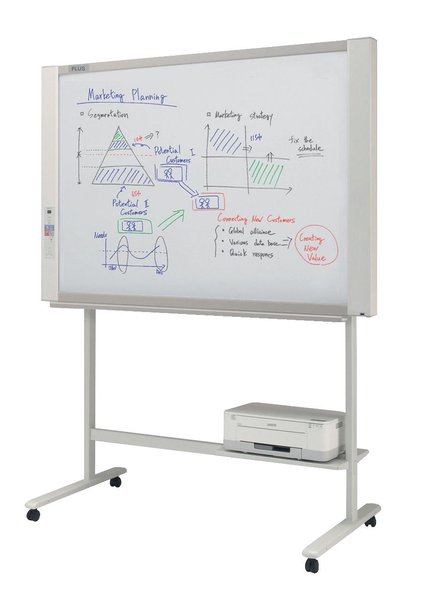 PLUS
Marketing Planning
Segmentation
Marketing strategy
1st
?
Potential I
Customers
1st
fix the
schedule
1st
Potential II
Customers
Connecting New Customers
• Global alliance
• Various data base
• Quick respons
Creating
New
Value
Needs